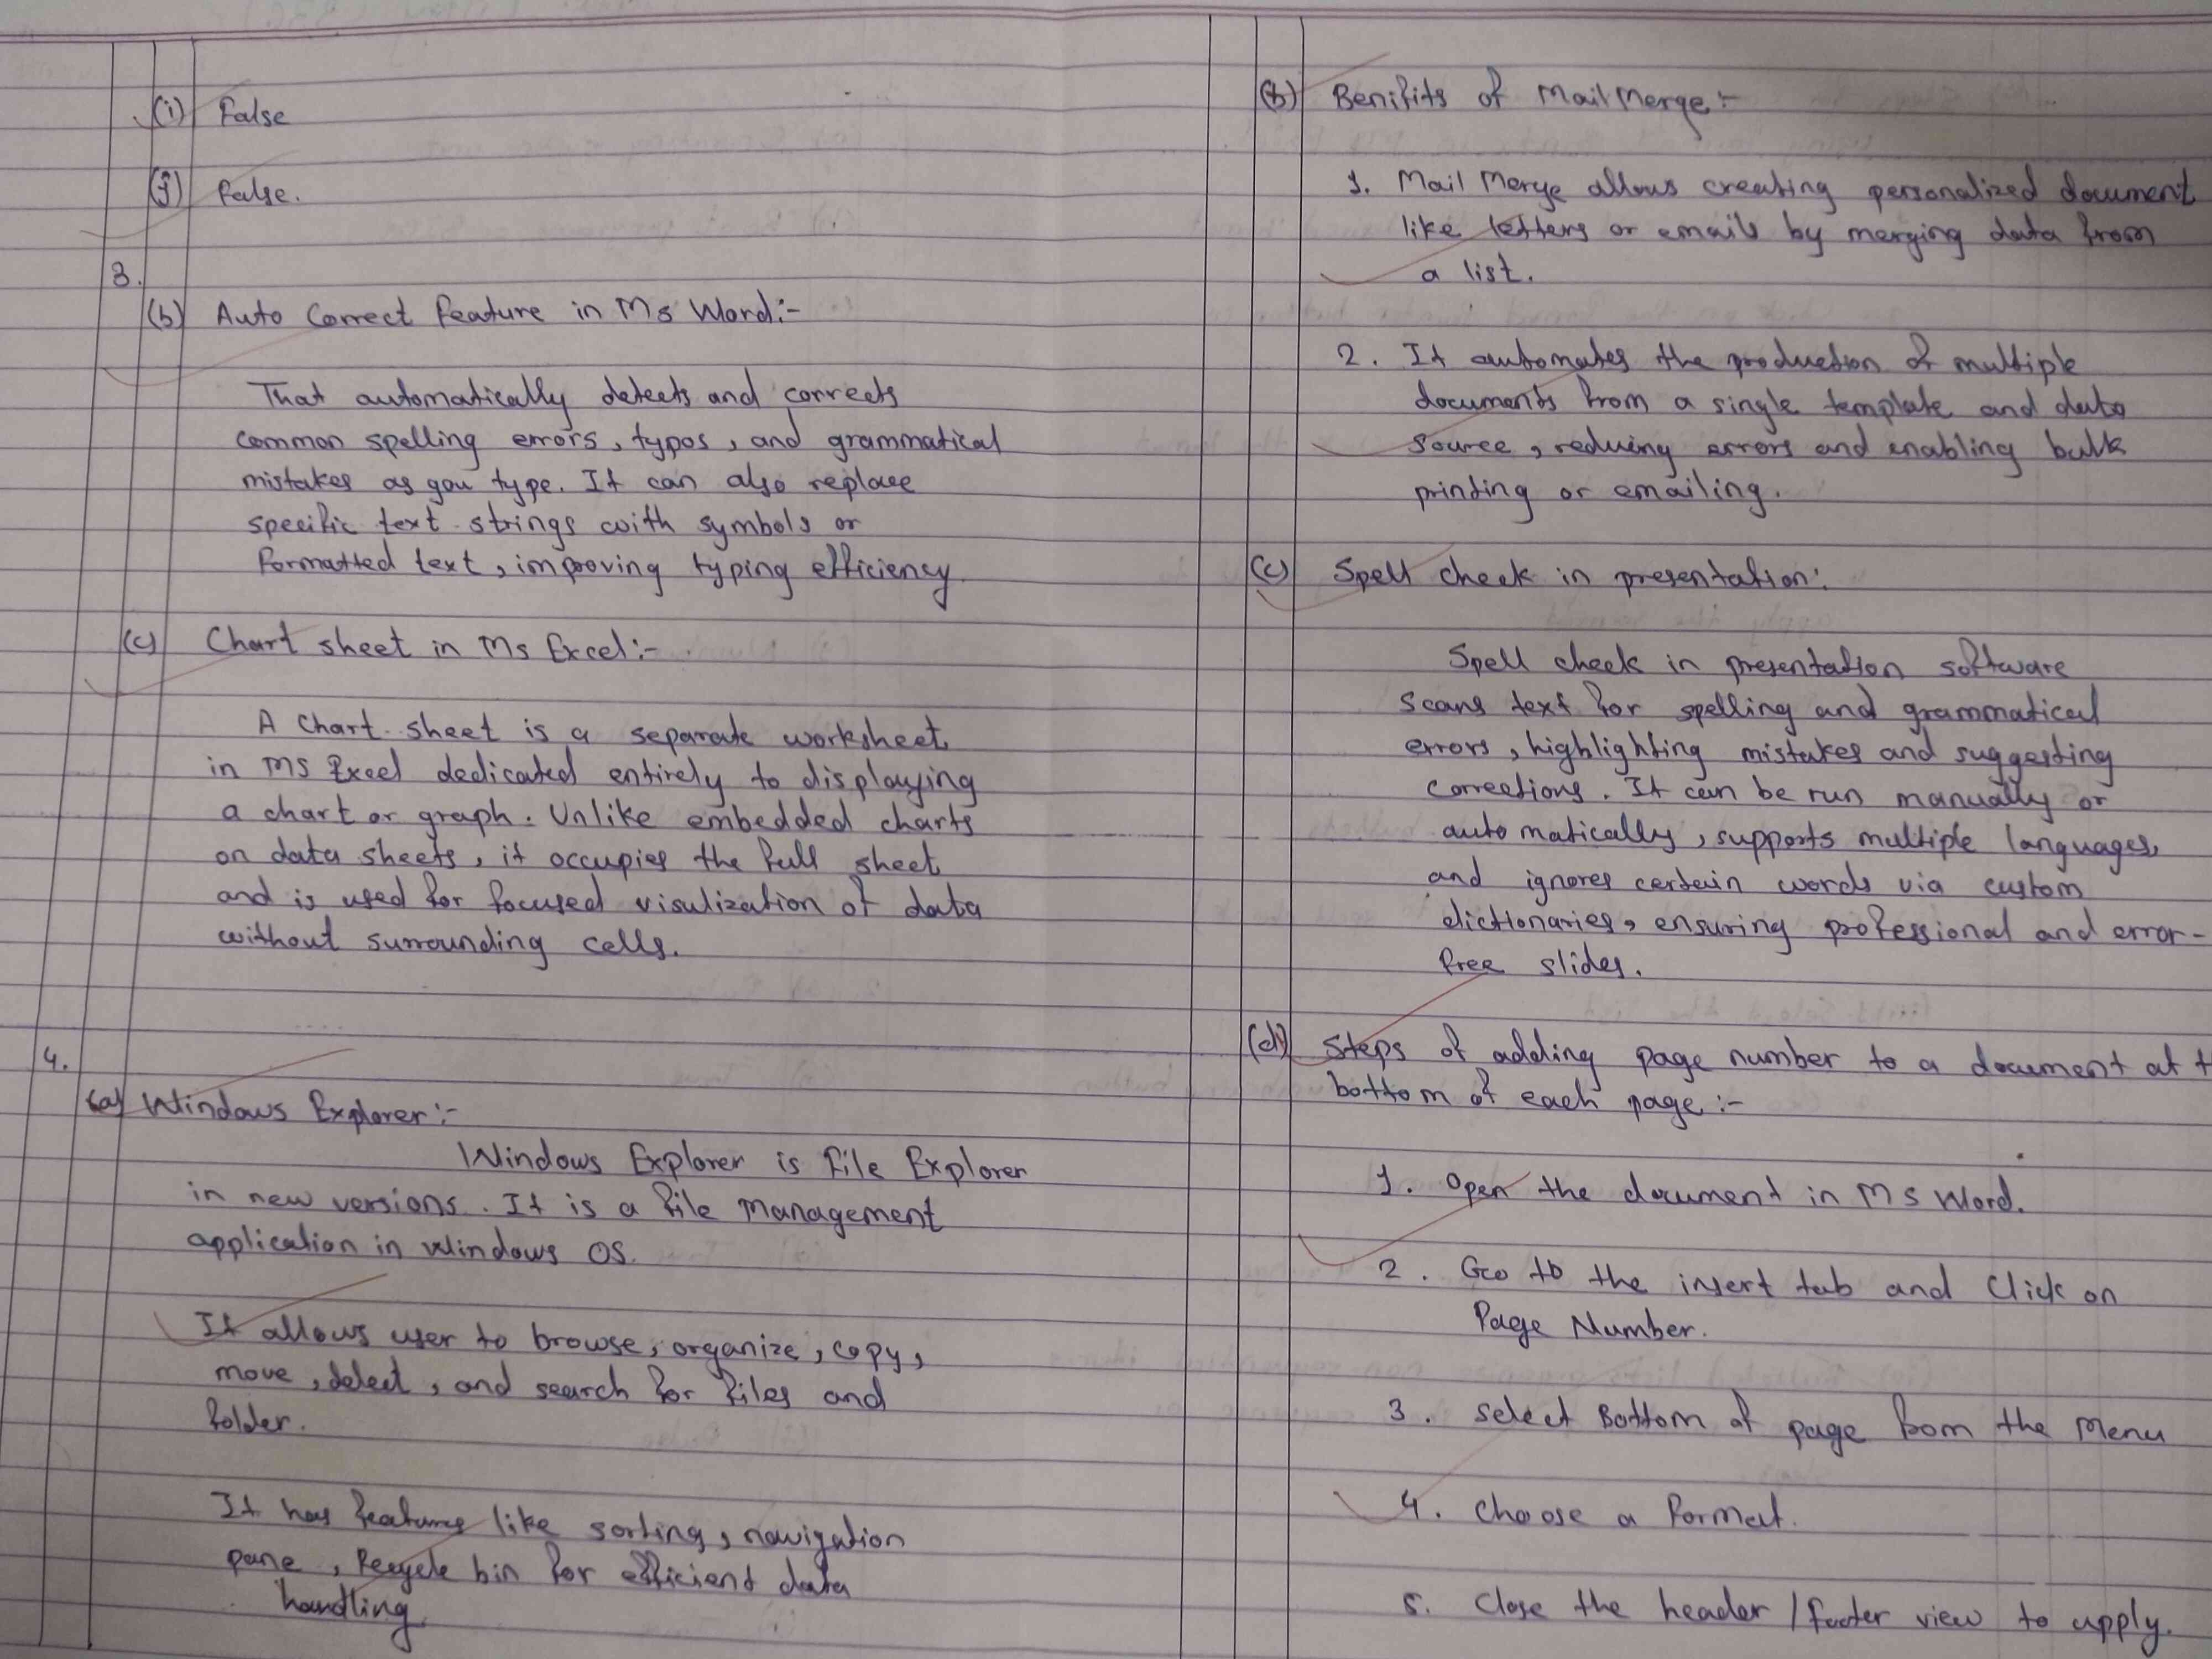 (i) False
(j) False.
3.
(b) Auto Correct feature in Ms Word:-
That automatically detects and corrects
common spelling errors, typos, and grammatical
mistakes as you type. It can also replace
specific text strings with symbols or
formatted text, improving typing efficiency.
(c) Chart sheet in Ms Excel:-
A Chart sheet is a separate worksheet
in MS Excel dedicated entirely to displaying
a chart or graph. Unlike embedded charts
on data sheets, it occupies the full sheet
and is used for focused visulization of data
without surrounding cells.
4.
(a) Windows Explorer:-
Windows Explorer is File Explorer
in new versions. It is a file management
application in Windows OS.
It allows user to browse, organize, copy,
move, delect, and search for files and
folder.
It has features like sorting, navigation
pane, Recycle bin for efficient data
handling.
(b) Benifits of Mail Merge:-
1. Mail Merge allows creating personalized document
like letters or emails by merging data from
a list.
2. It automates the production of multiple
documents from a single template and data
source, reducing errors and enabling bulk
printing or emailing.
(c) Spell check in presentation:
Spell check in presentation software
scans text for spelling and grammatical
errors, highlighting mistakes and suggesting
corrections. It can be run manually or
automatically, supports multiple languages,
and ignores certain words via custom
dictionaries, ensuring professional and error-
free slides.
(d) Steps of adding page number to a document at
bottom of each page:-
1. Open the document in MS Word.
2. Go to the insert tab and Click on
Page Number.
3. Select Bottom of page from the Menu
4. Choose a format.
5. Close the header/footer view to apply.